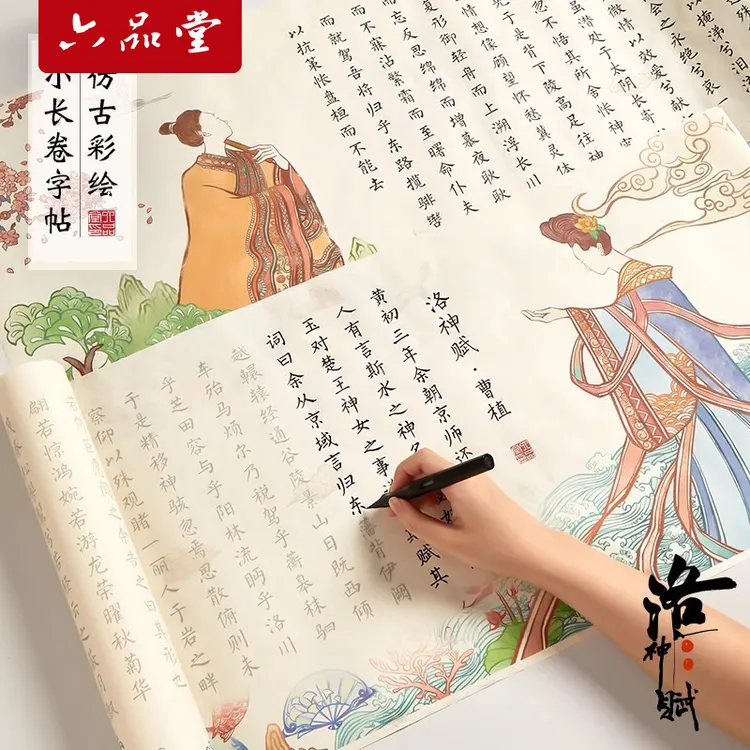 六品堂
仿古彩绘
小长卷字帖
以掩涕兮泪
会之永绝兮哀一
微情以效爱兮献
虽潜处于太阴长寄
忽不悟其所舍怅神
于是背下陵高足往神
情想像顾望怀愁冀灵体
复形御轻舟而上溯浮长川
忘反思绵绵而增慕夜耿耿
而不寐沾繁霜而至曙命仆夫
而就驾吾将归乎东路揽騑辔
以抗策怅盘桓而不能去
洛神赋·曹植
黄初三年余朝京师还
人有言斯水之神名
玉对楚王神女之事 赋其
词曰余从京域言归东藩背伊阙
越轘辕经通谷陵景山日既西倾
车殆马烦尔乃税驾乎蘅皋秣驷
乎芝田容与乎阳林流眄乎洛川
于是精移神骇忽焉思散俯则未
察仰以殊观睹一丽人于岩之畔
翩若惊鸿婉若游龙荣曜秋菊华
洛神赋